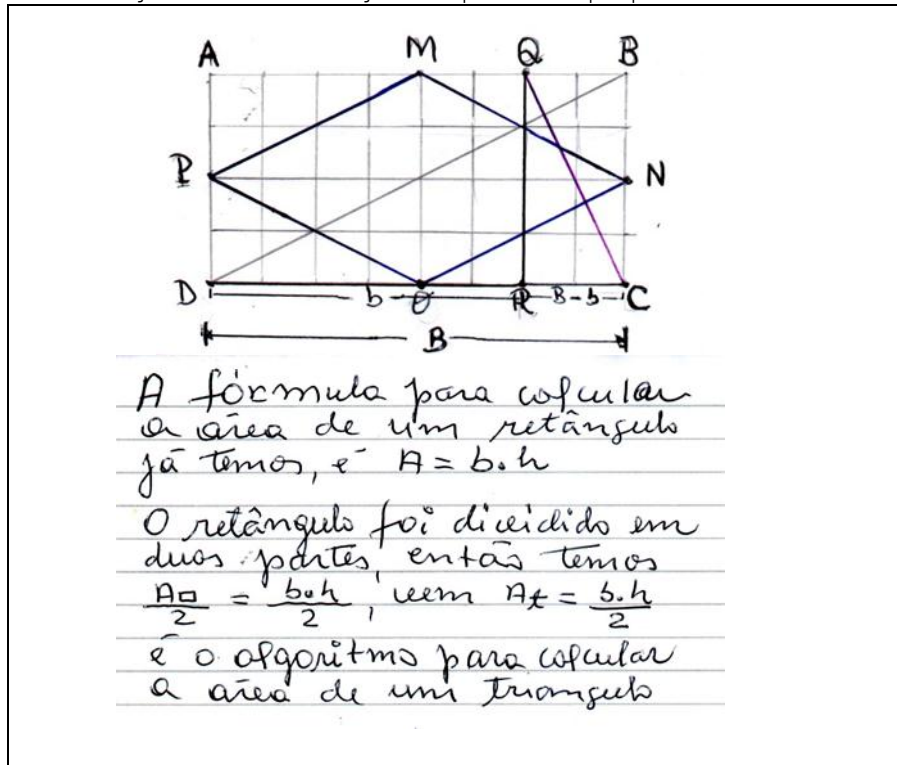 A M Q B
P N
D b O R B-b C
B
A fórmula para colcular
a área de um retângulo
já temos, é A = b.h
O retângulo foi dividido em
duas partes, então temos
A□/2 = b.h/2, vem At = b.h/2
é o algoritmo para colcular
a área de um triangulo